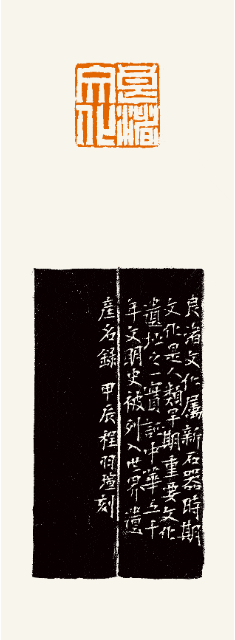 良渚文化
良渚文化屬新石器時期
文化是人類早期重要文化
遺址之一實証中華五千
年文明史被列入世界遺
產名錄 甲辰程羽瑄刻